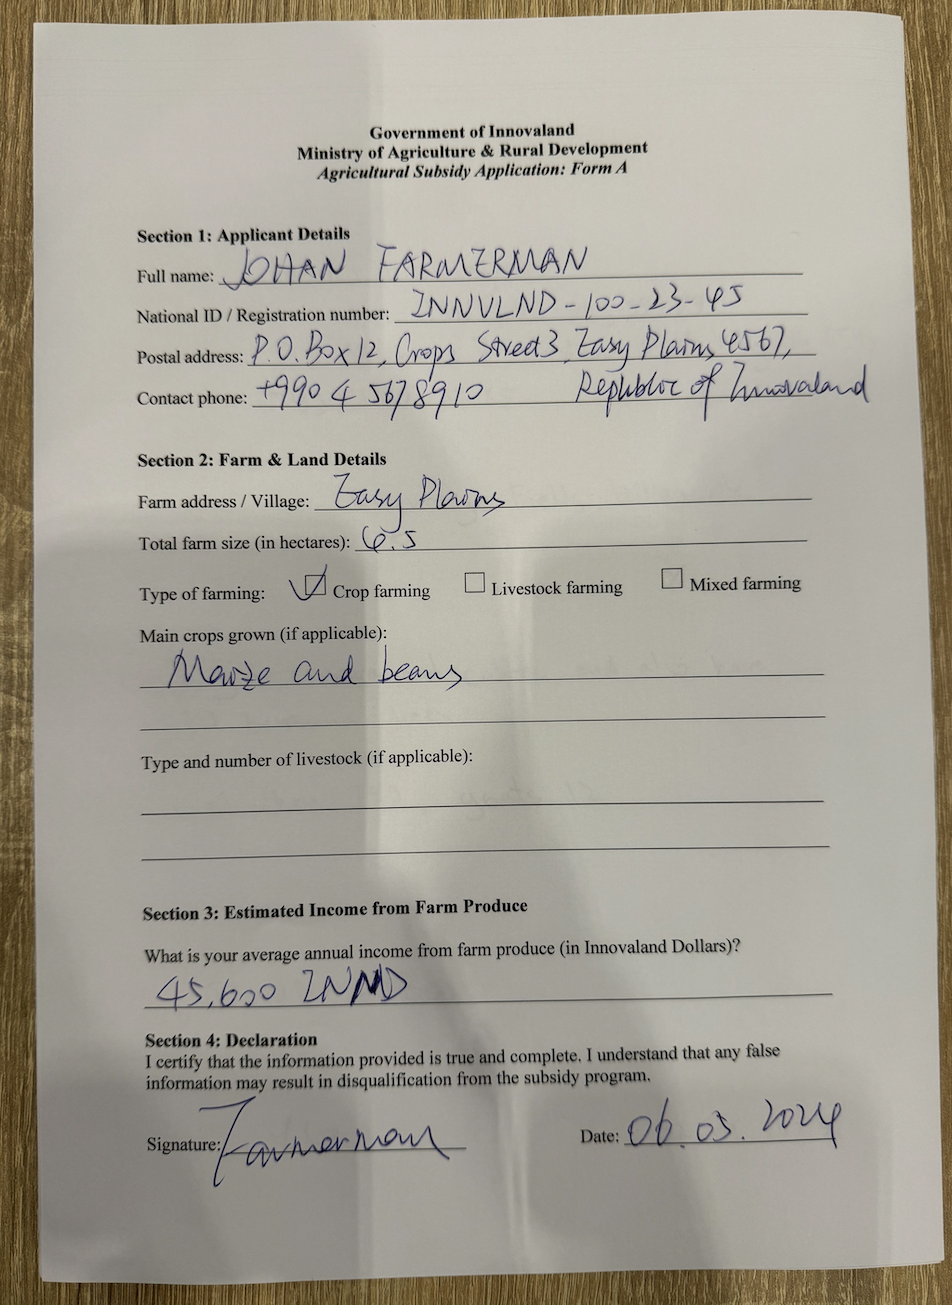 Government of Innovaland
Ministry of Agriculture & Rural Development
Agricultural Subsidy Application: Form A
Section 1: Applicant Details
Full name: JOHAN FARMERMAN
National ID / Registration number: INNVLND-100-23-45
Postal address: P.O. Box 12, Crops Street 3, Easy Plains, 4567,
Republic of Innovaland
Contact phone: +990 4 5678910
Section 2: Farm & Land Details
Farm address / Village: Easy Plains
Total farm size (in hectares): 6.5
Type of farming: ☑ Crop farming ☐ Livestock farming ☐ Mixed farming
Main crops grown (if applicable):
Maize and beans
Type and number of livestock (if applicable):
Section 3: Estimated Income from Farm Produce
What is your average annual income from farm produce (in Innovaland Dollars)?
45,600 INND
Section 4: Declaration
I certify that the information provided is true and complete. I understand that any false
information may result in disqualification from the subsidy program.
Signature: Farmerman Date: 06.03.2024